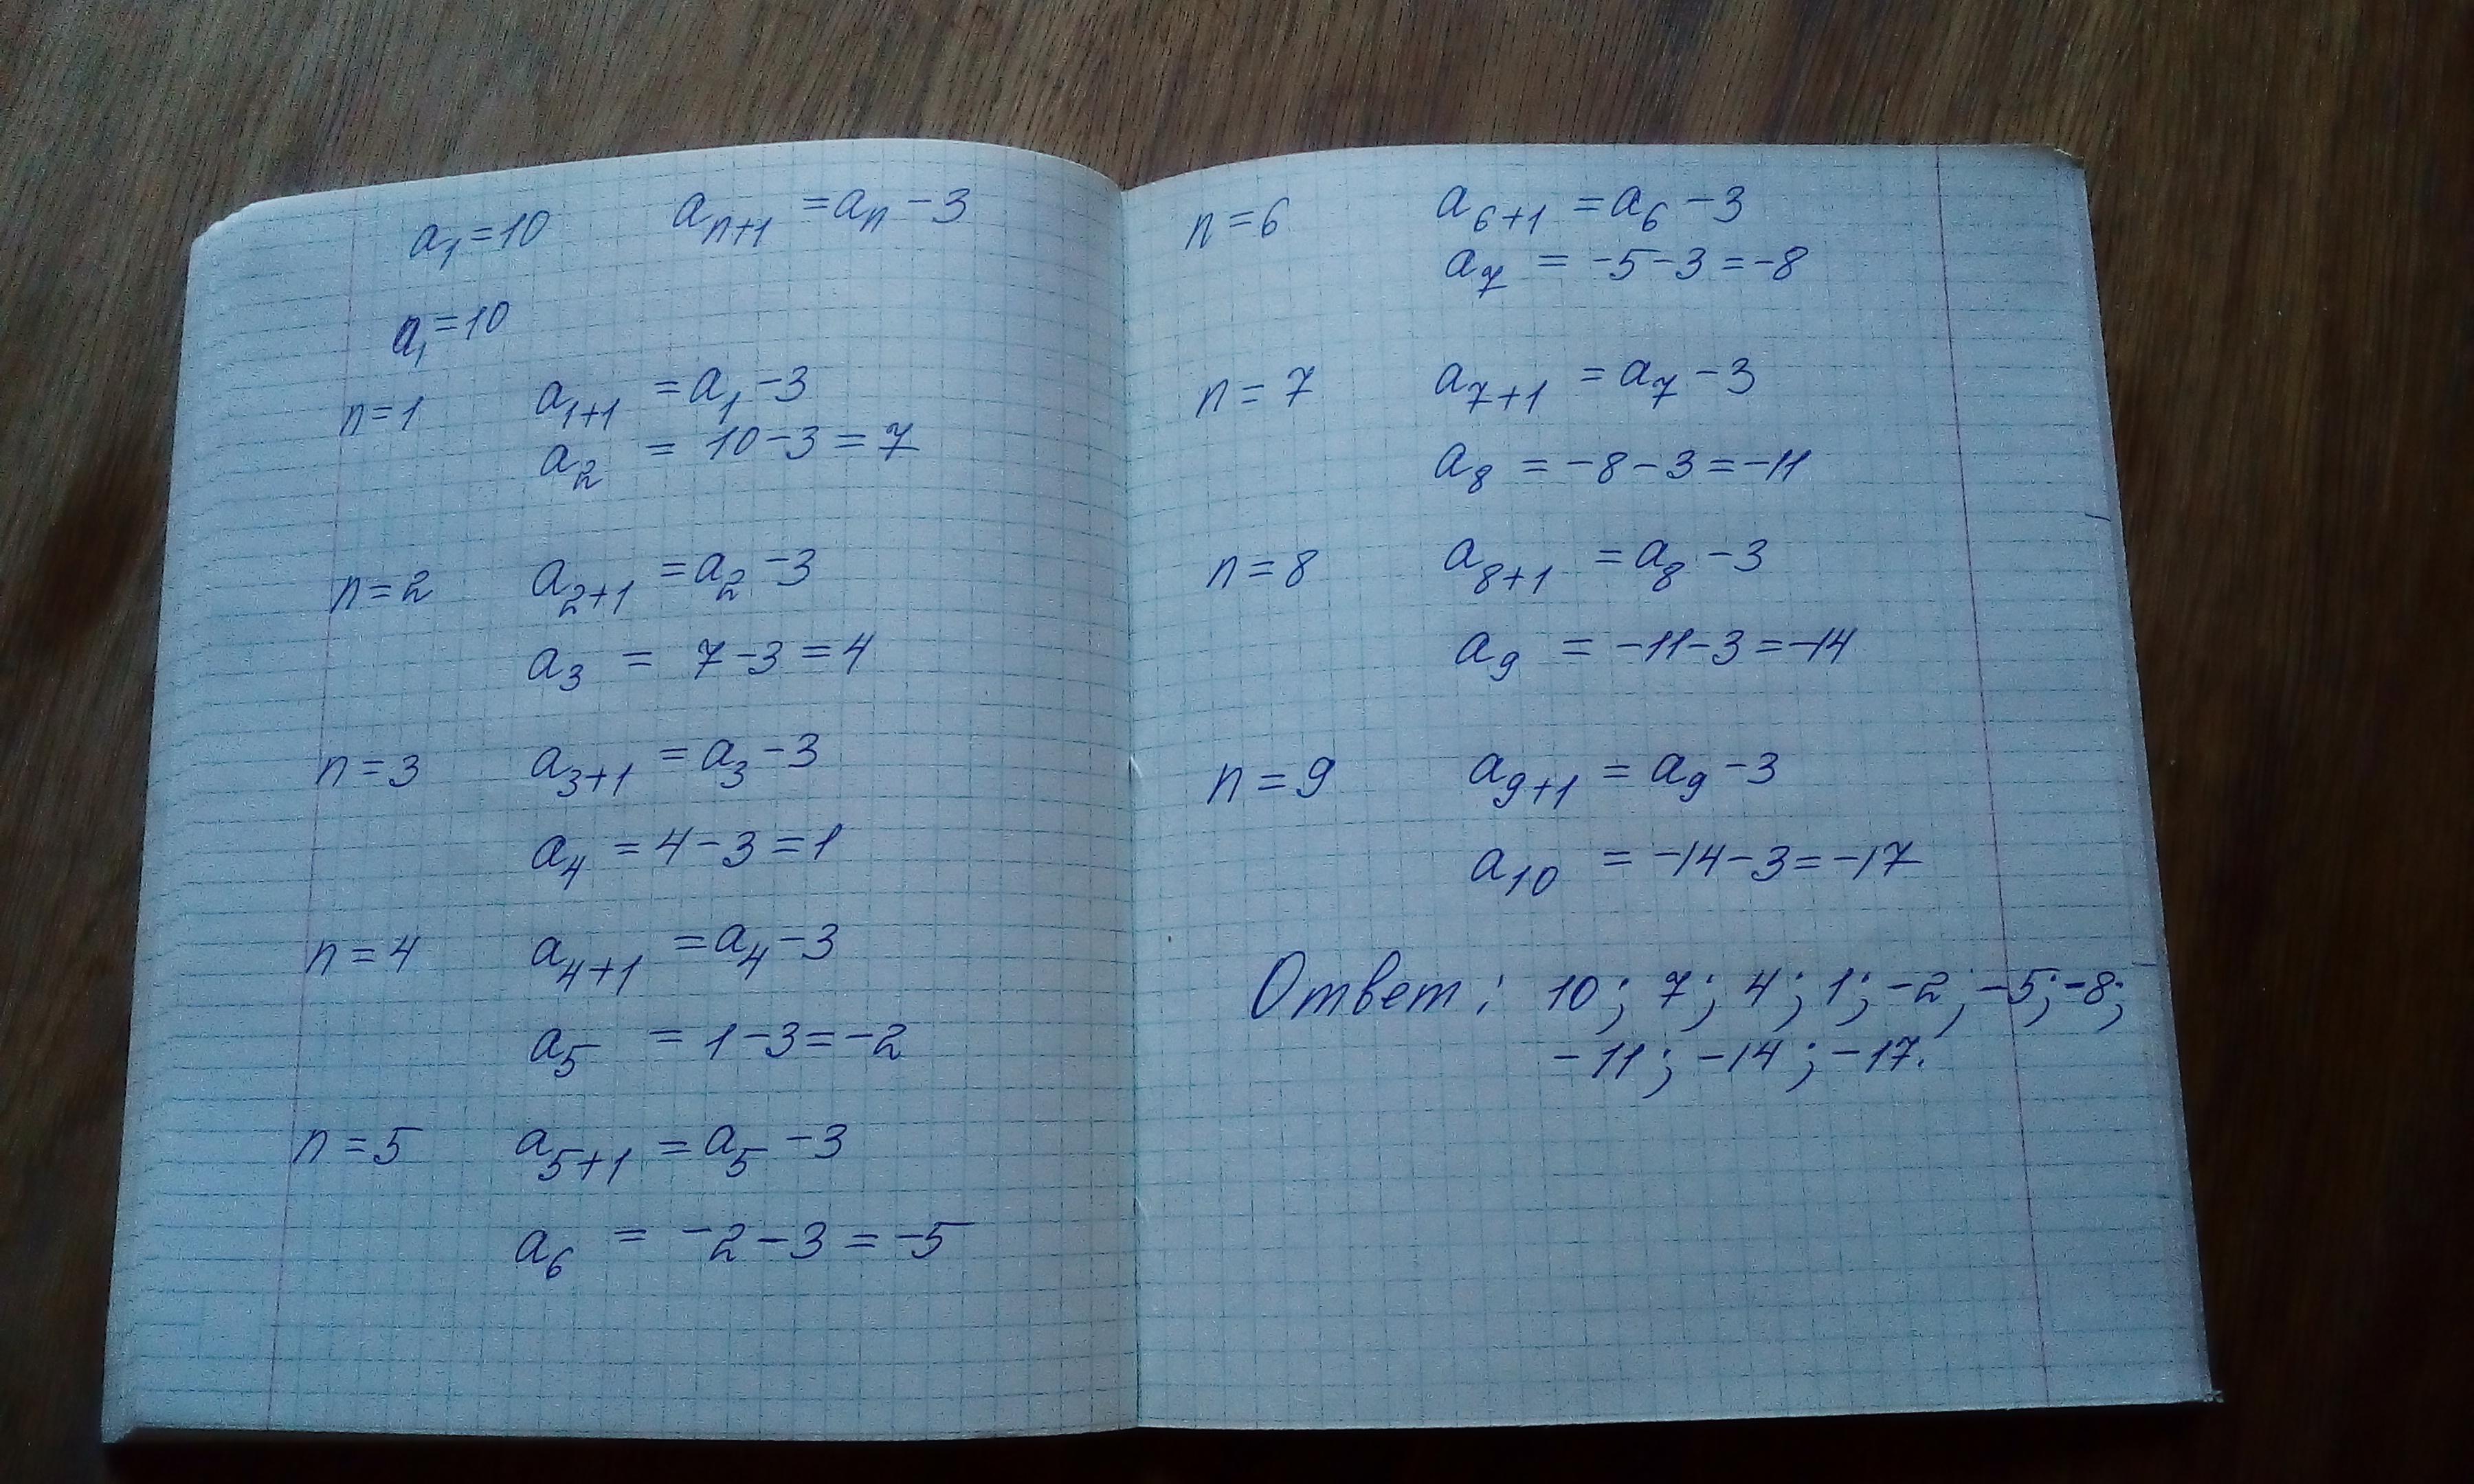 a₁ = 10 aₙ₊₁ = aₙ − 3
a₁ = 10
n = 1 a₁₊₁ = a₁ − 3
a₂ = 10 − 3 = 7
n = 2 a₂₊₁ = a₂ − 3
a₃ = 7 − 3 = 4
n = 3 a₃₊₁ = a₃ − 3
a₄ = 4 − 3 = 1
n = 4 a₄₊₁ = a₄ − 3
a₅ = 1 − 3 = −2
n = 5 a₅₊₁ = a₅ − 3
a₆ = −2 − 3 = −5
n = 6 a₆₊₁ = a₆ − 3
a₇ = −5 − 3 = −8
n = 7 a₇₊₁ = a₇ − 3
a₈ = −8 − 3 = −11
n = 8 a₈₊₁ = a₈ − 3
a₉ = −11 − 3 = −14
n = 9 a₉₊₁ = a₉ − 3
a₁₀ = −14 − 3 = −17
Ответ: 10; 7; 4; 1; −2; −5; −8;
−11; −14; −17.